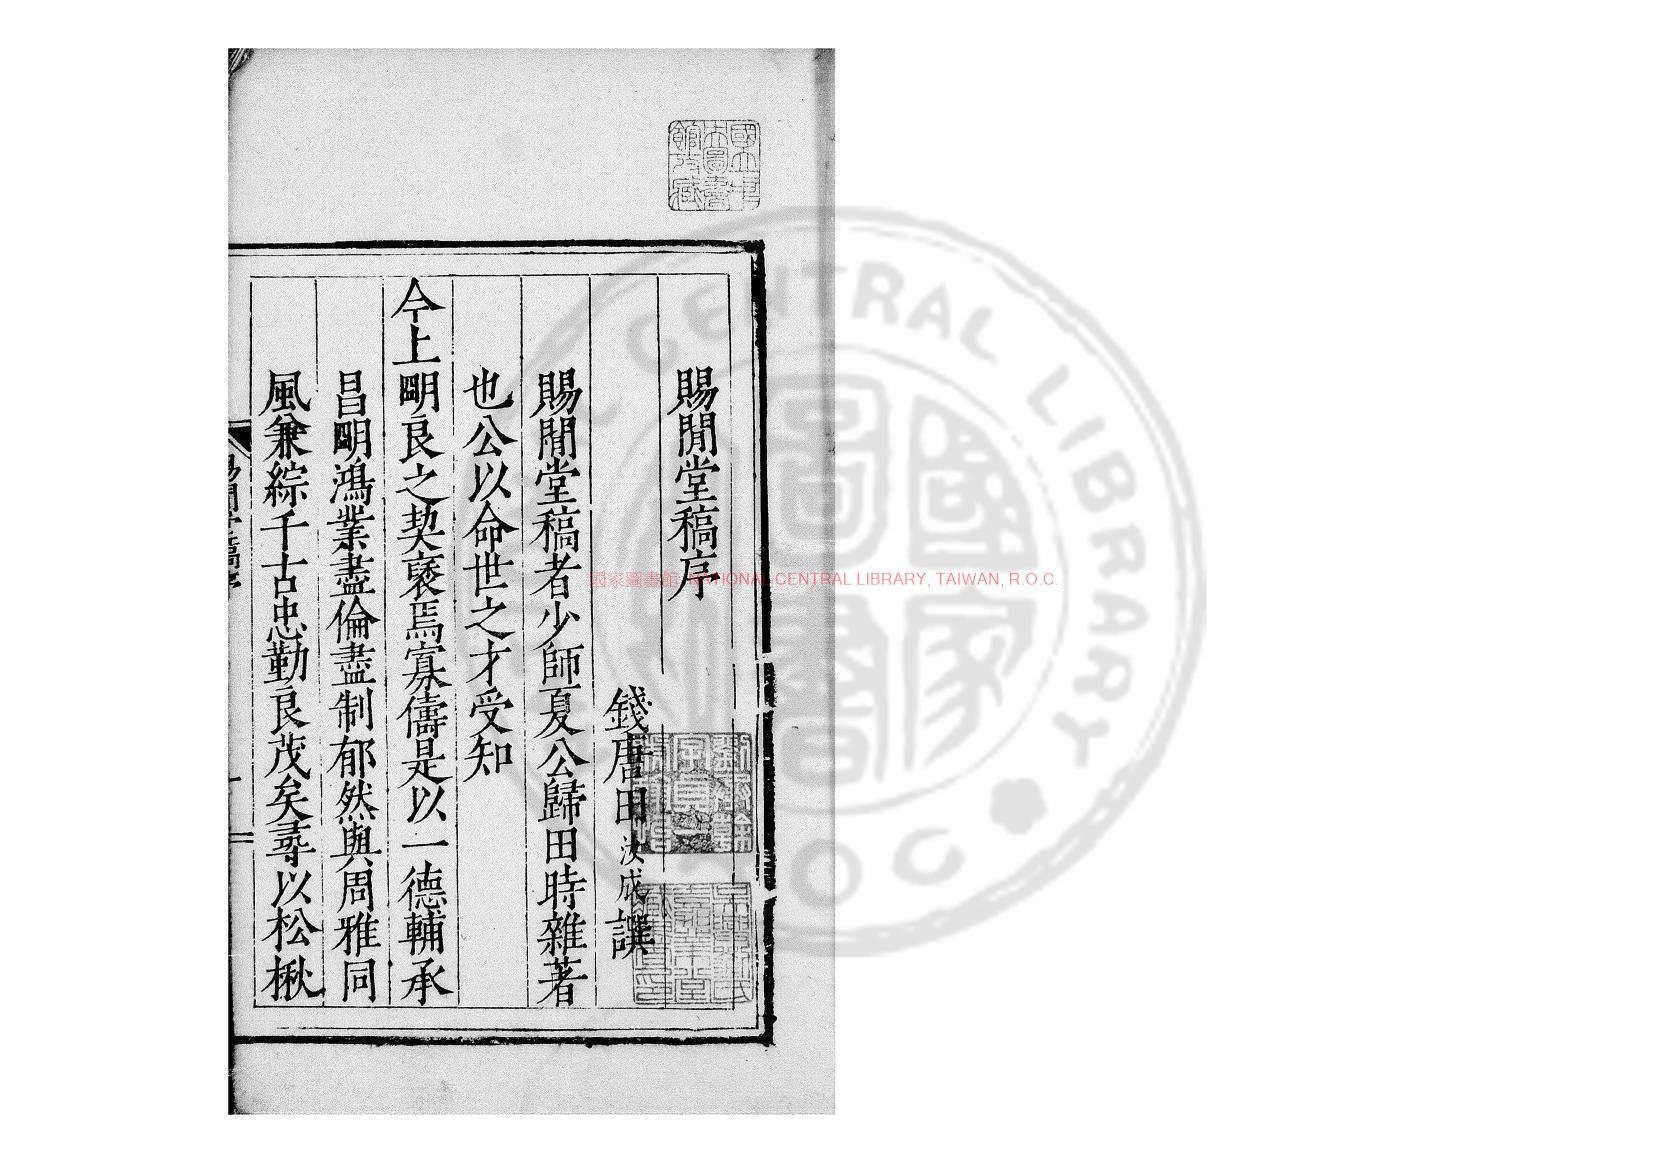 賜閒堂稿序
錢唐田汝成譔
賜閒堂稿者少師夏公歸田時雜著
也公以命世之才受知
今上朙良之契褒焉寡儔是以一德輔承
昌朙鴻業盡倫盡制郁然與周雅同
風兼綜千古忠勤良茂矣尋以松楸
賜閒堂稿序
一
國立中央圖書館收藏
國家圖書館 NATIONAL CENTRAL LIBRARY, TAIWAN, R.O.C.
國家圖書
CENTRAL LIBRARY
R.O.C.